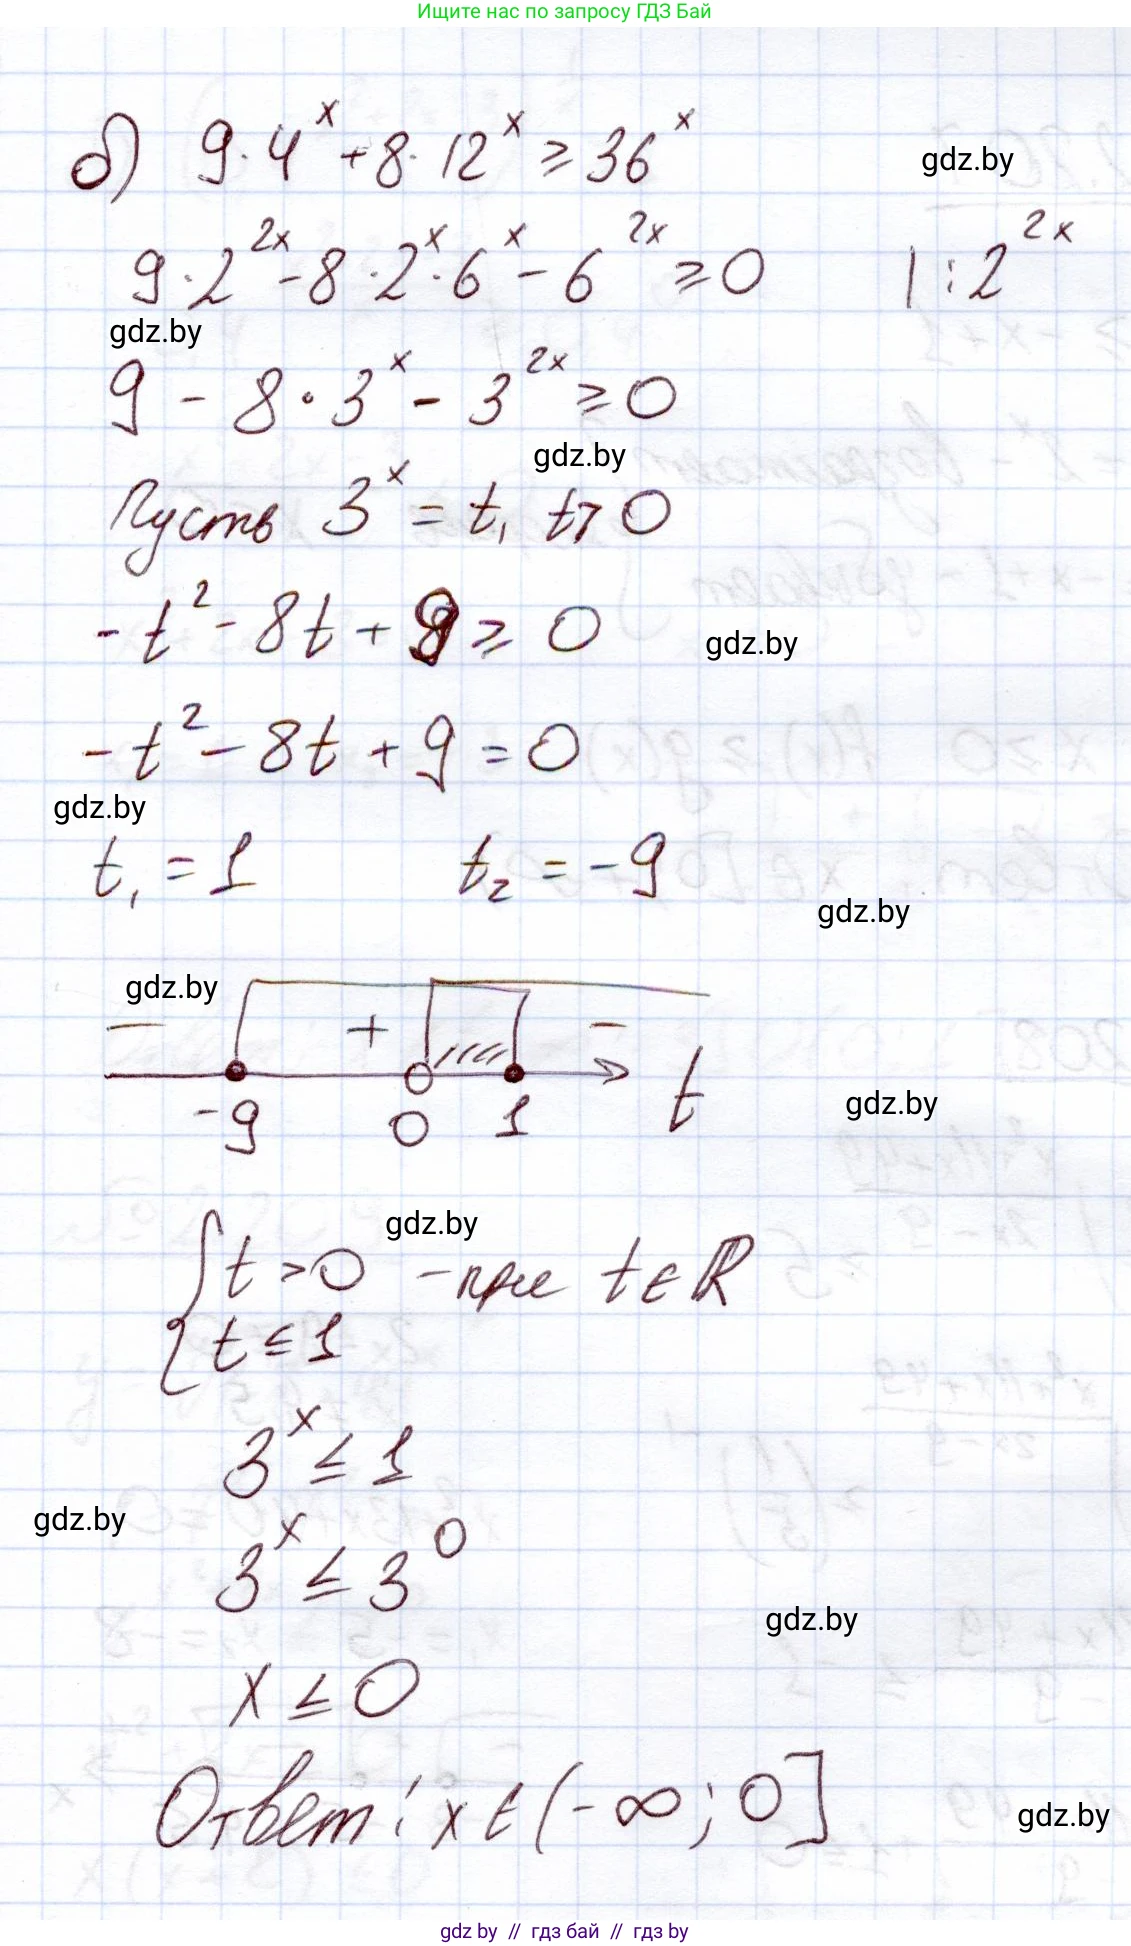 Ищите нас по запросу ГДЗ Бай
б) 9·4^x + 8·12^x ≥ 36^x
gdz.by
9·2^2x - 8·2^x·6^x - 6^2x ≥ 0 | : 2^2x
gdz.by
9 - 8·3^x - 3^2x ≥ 0
gdz.by
Пусть 3^x = t, t > 0
-t² - 8t + 9 ≥ 0
gdz.by
-t² - 8t + 9 = 0
gdz.by
t₁ = 1 t₂ = -9
gdz.by
gdz.by
− + −
-9 0 1 t
gdz.by
gdz.by
{ t > 0 - при t ∈ R
t ≤ 1
3^x ≤ 1
gdz.by
3^x ≤ 3^0
gdz.by
x ≤ 0
Ответ: x ∈ (-∞; 0]
gdz.by
gdz by // гдз бай // гдз by